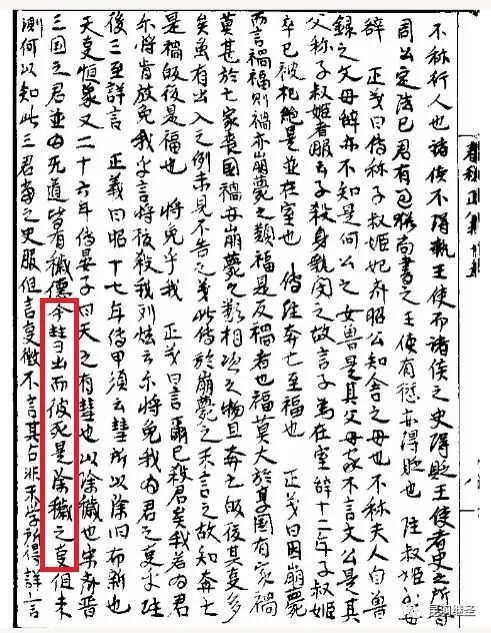 不称行人也諸侯不得執王使而諸侯之史得貶王使者史之所書
周公定法已君有過猶尚書之王使有愆亦得貶也 陸叔姬
辞 正義曰傳称子叔姬妃齊昭公知舍之母也不称夫人自魯
録之父母辞亦不知是何公之女魯是其父母家不言文公是其
父称子叔姬者服云子殺身執閔之故言子為在室辞十二年子叔姬
卒已被杞絶是並在室也 傳注奔亡至福也 正義曰因崩薨
而言禍福則禍亦崩薨之類福是反禍者也福莫大於享国有家禍
莫甚於亡家喪国禍与崩薨之類相将之物且奔亡皈後其事多
矣虽有出入之例未見不告之義此傳於崩薨之末言之故知奔亡
是禍皈後是福也 将免乎我 正義曰言爾已殺君矣我若為君
尓将肯放免我乎言将復殺我刘炫云尓将免我為君之事乎 注
後三至詳言 正義曰昭十七年傳申須云彗所以除旧布新也
天事恒象又二十六年傳晏子曰天之有彗也以除穢也宋齊晋
三国之君並為无道皆有穢德今彗出而彼死是除穢之事但未
測何以知此三君當之史服但言事徵不言其占非末学所得詳言
春秋正義